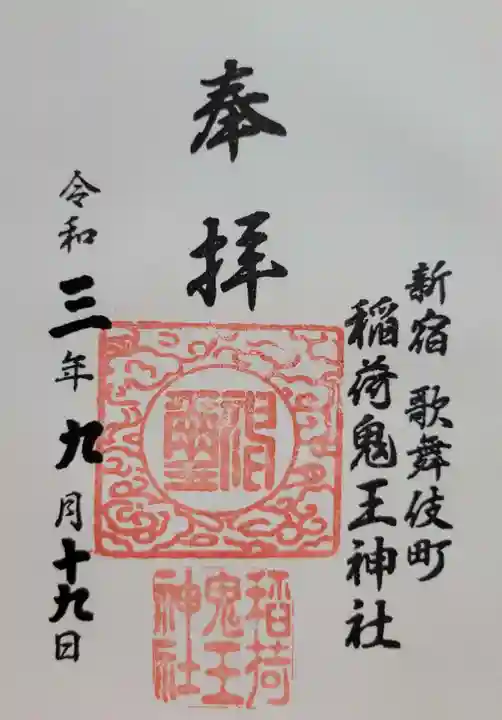 新宿 歌舞伎町
稲荷鬼王神社
奉拝
令和三年九月十九日
稲荷
鬼王
神社